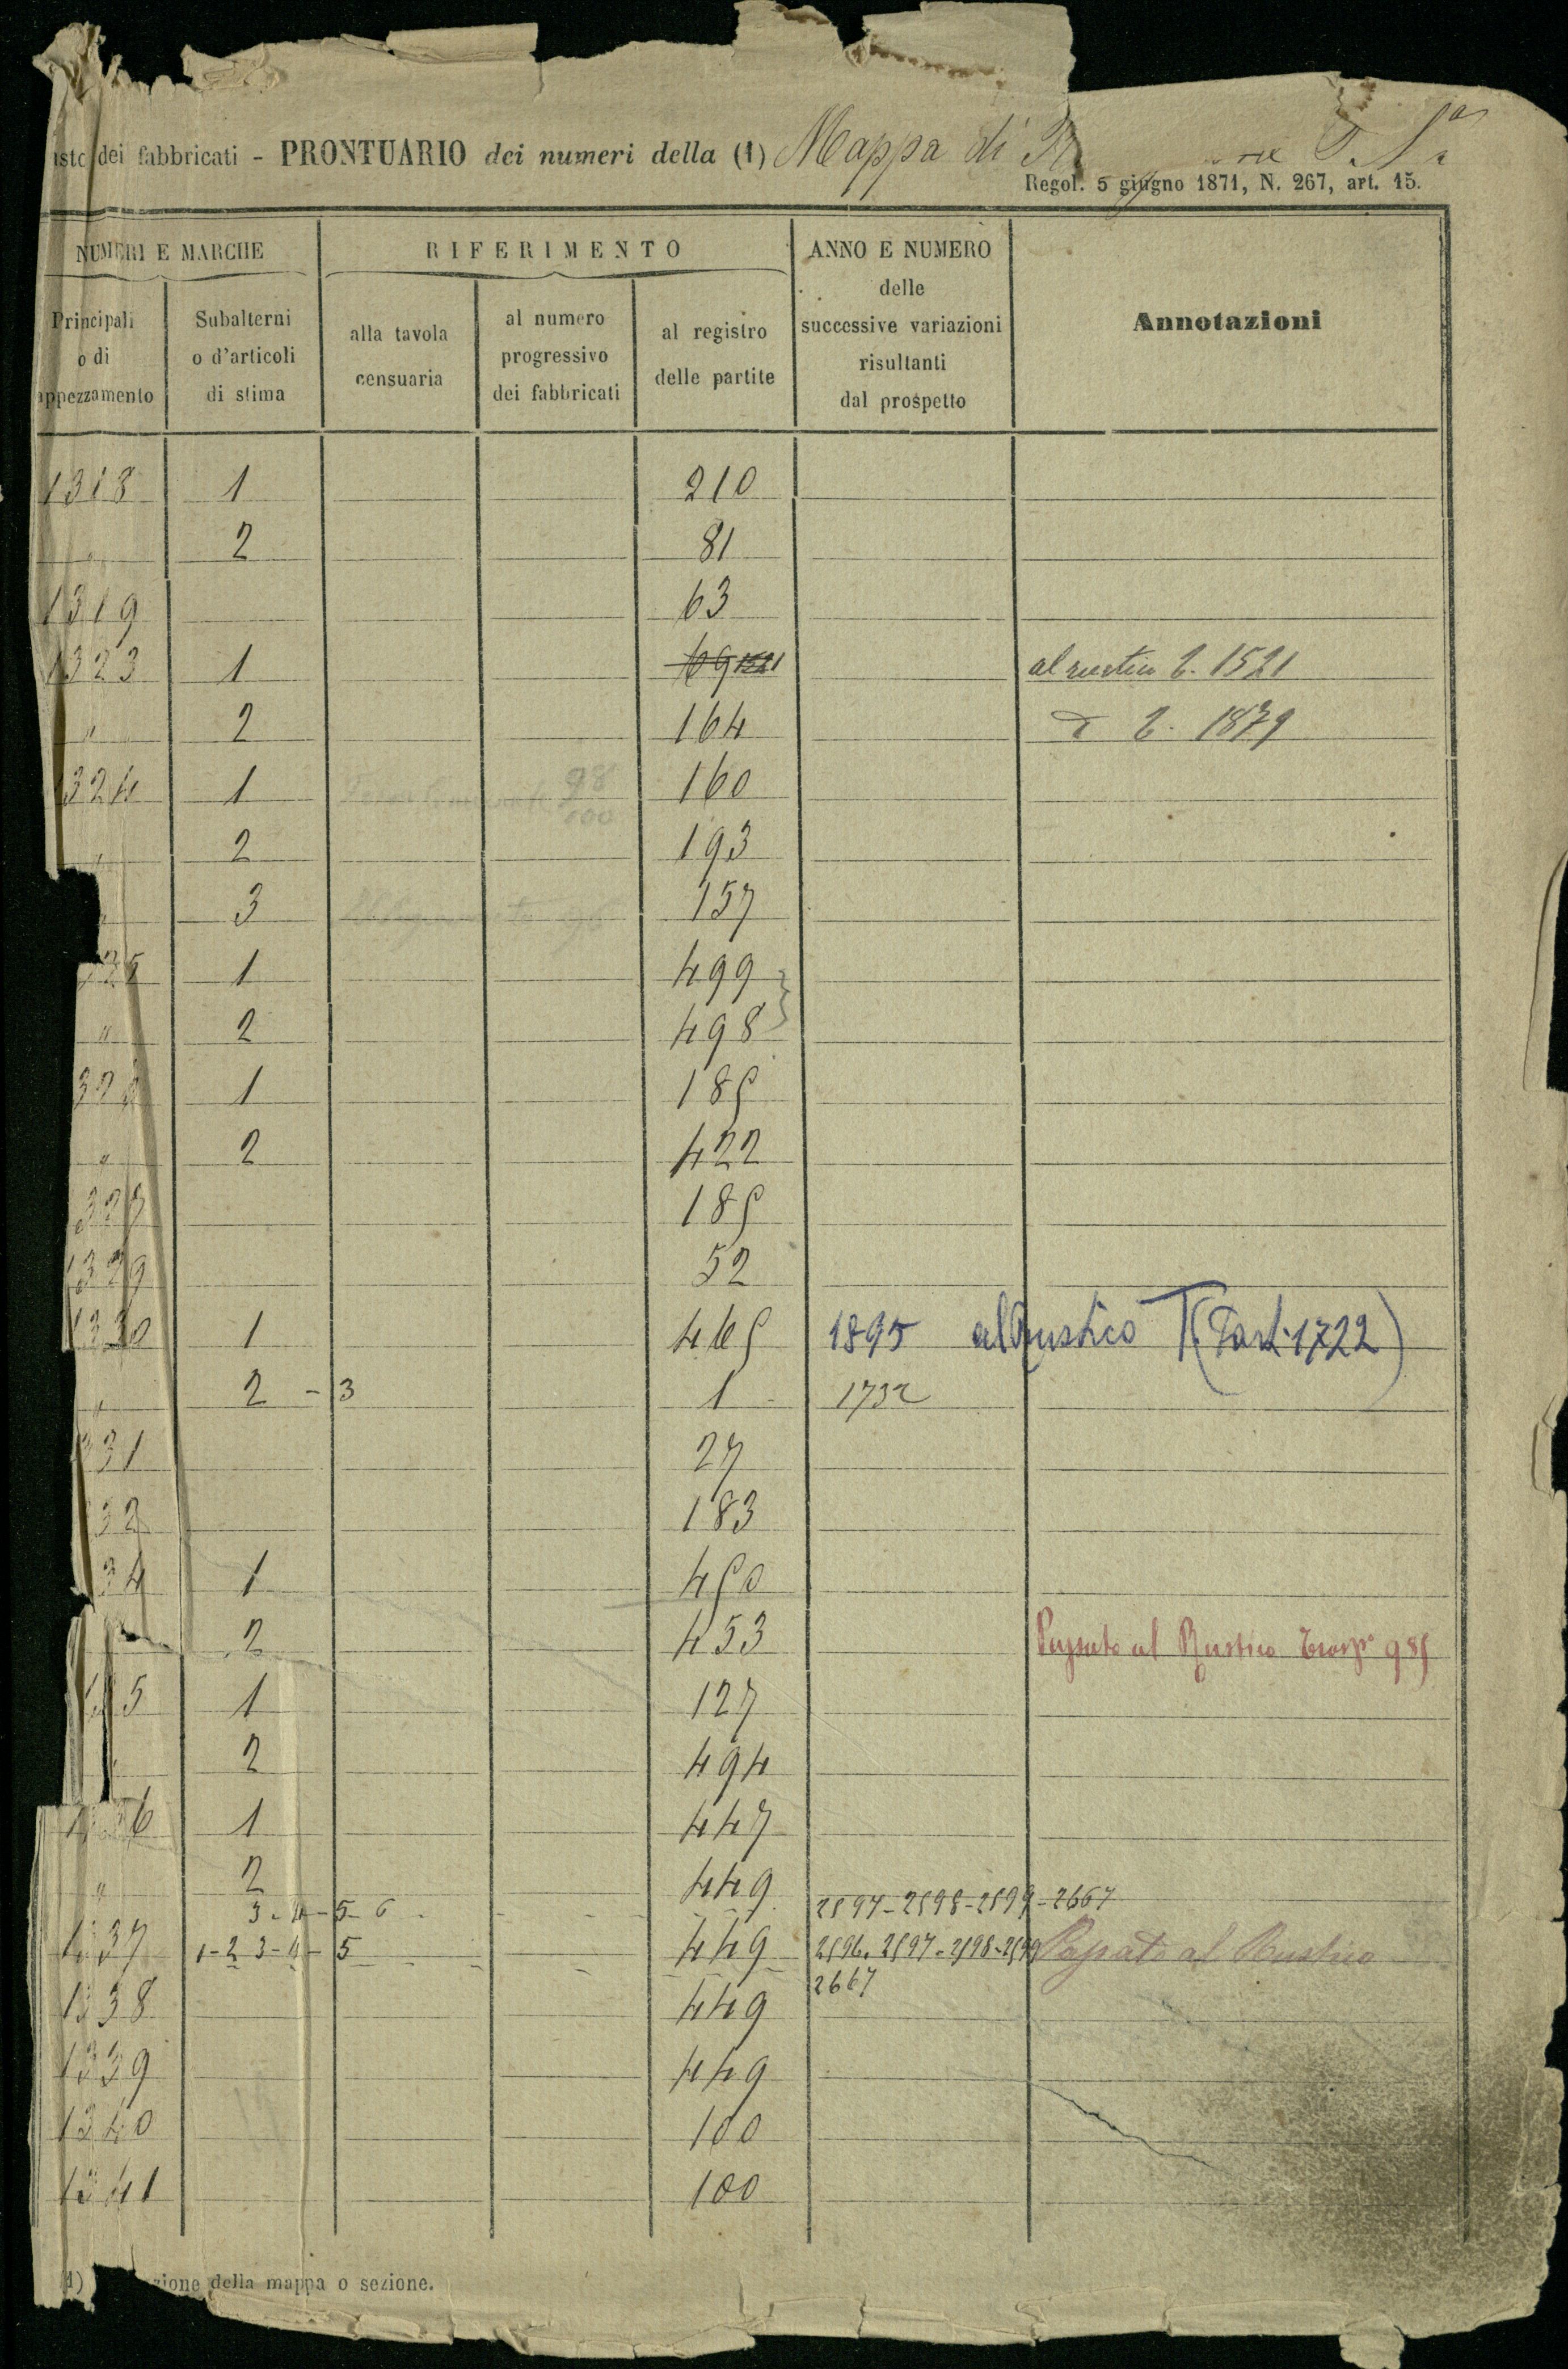 dei fabbricati - PRONTUARIO dei numeri della (1) Mappa di
Regol. 5 giugno 1871, N. 267, art. 15.
NUMERI E MARCHE
Principali o di appezzamento
Subalterni o d'articoli di stima
RIFERIMENTO
alla tavola censuaria
al numero progressivo dei fabbricati
al registro delle partite
ANNO E NUMERO delle successive variazioni risultanti dal prospetto
Annotazioni
1318 1 210
" 2 81
1319 63
1323 1 69 1521 al rustico 1521
" 2 164 1879
1324 1 98 100 160
" 2 193
" 3 157
325 1 499
" 2 498
32 1 185
" 2 422
32 185
1329 52
1330 1 465 1895 al Rustico T (Part. 1722)
" 2 - 3 1 1732
331 27
32 183
34 1 450
2 453 Passato al Rustico 985
5 1 127
" 2 494
1336 1 447
" 2 449
3-4-5-6 2597-2598-2599-2667
1337 1-2 3-4-5 449 2596-2597-2598-2599 Passato al Rustico
2667
1338 449
1339 449
1340 100
1341 100
zione della mappa o sezione.